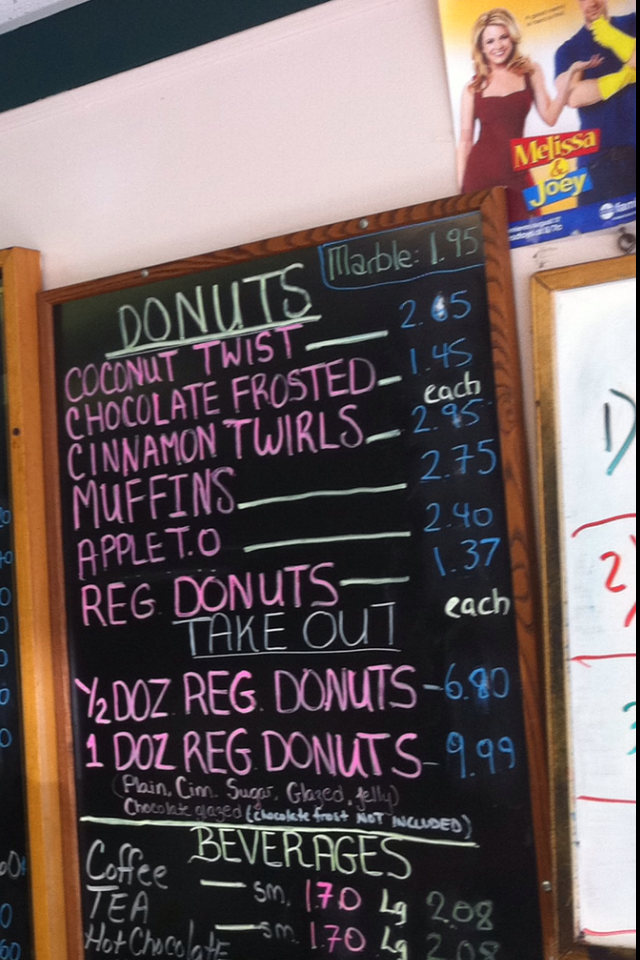 Melissa
&
Joey
Marble: 1.95
DONUTS
COCONUT TWIST 2.65
CHOCOLATE FROSTED 1.45
each
CINNAMON TWIRLS 2.95
MUFFINS 2.75
APPLE T.O 2.40
REG. DONUTS 1.37
each
TAKE OUT
1/2 DOZ REG. DONUTS - 6.80
1 DOZ REG DONUTS - 9.99
(Plain, Cinn. Sugar, Glazed, Jelly)
Chocolate glazed (chocolate frost NOT INCLUDED)
BEVERAGES
Coffee sm. 1.70 Lg 2.08
TEA sm. 1.70 Lg 2.08
Hot Chocolate